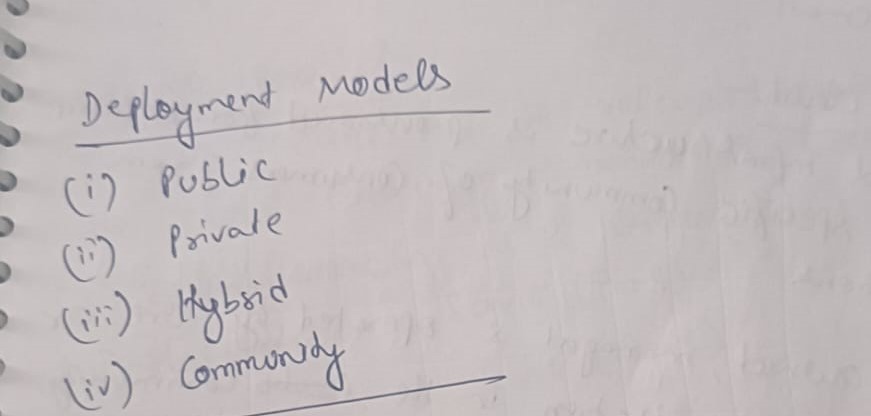 Deployment Models
(i) Public
(ii) Private
(iii) Hybrid
(iv) Community